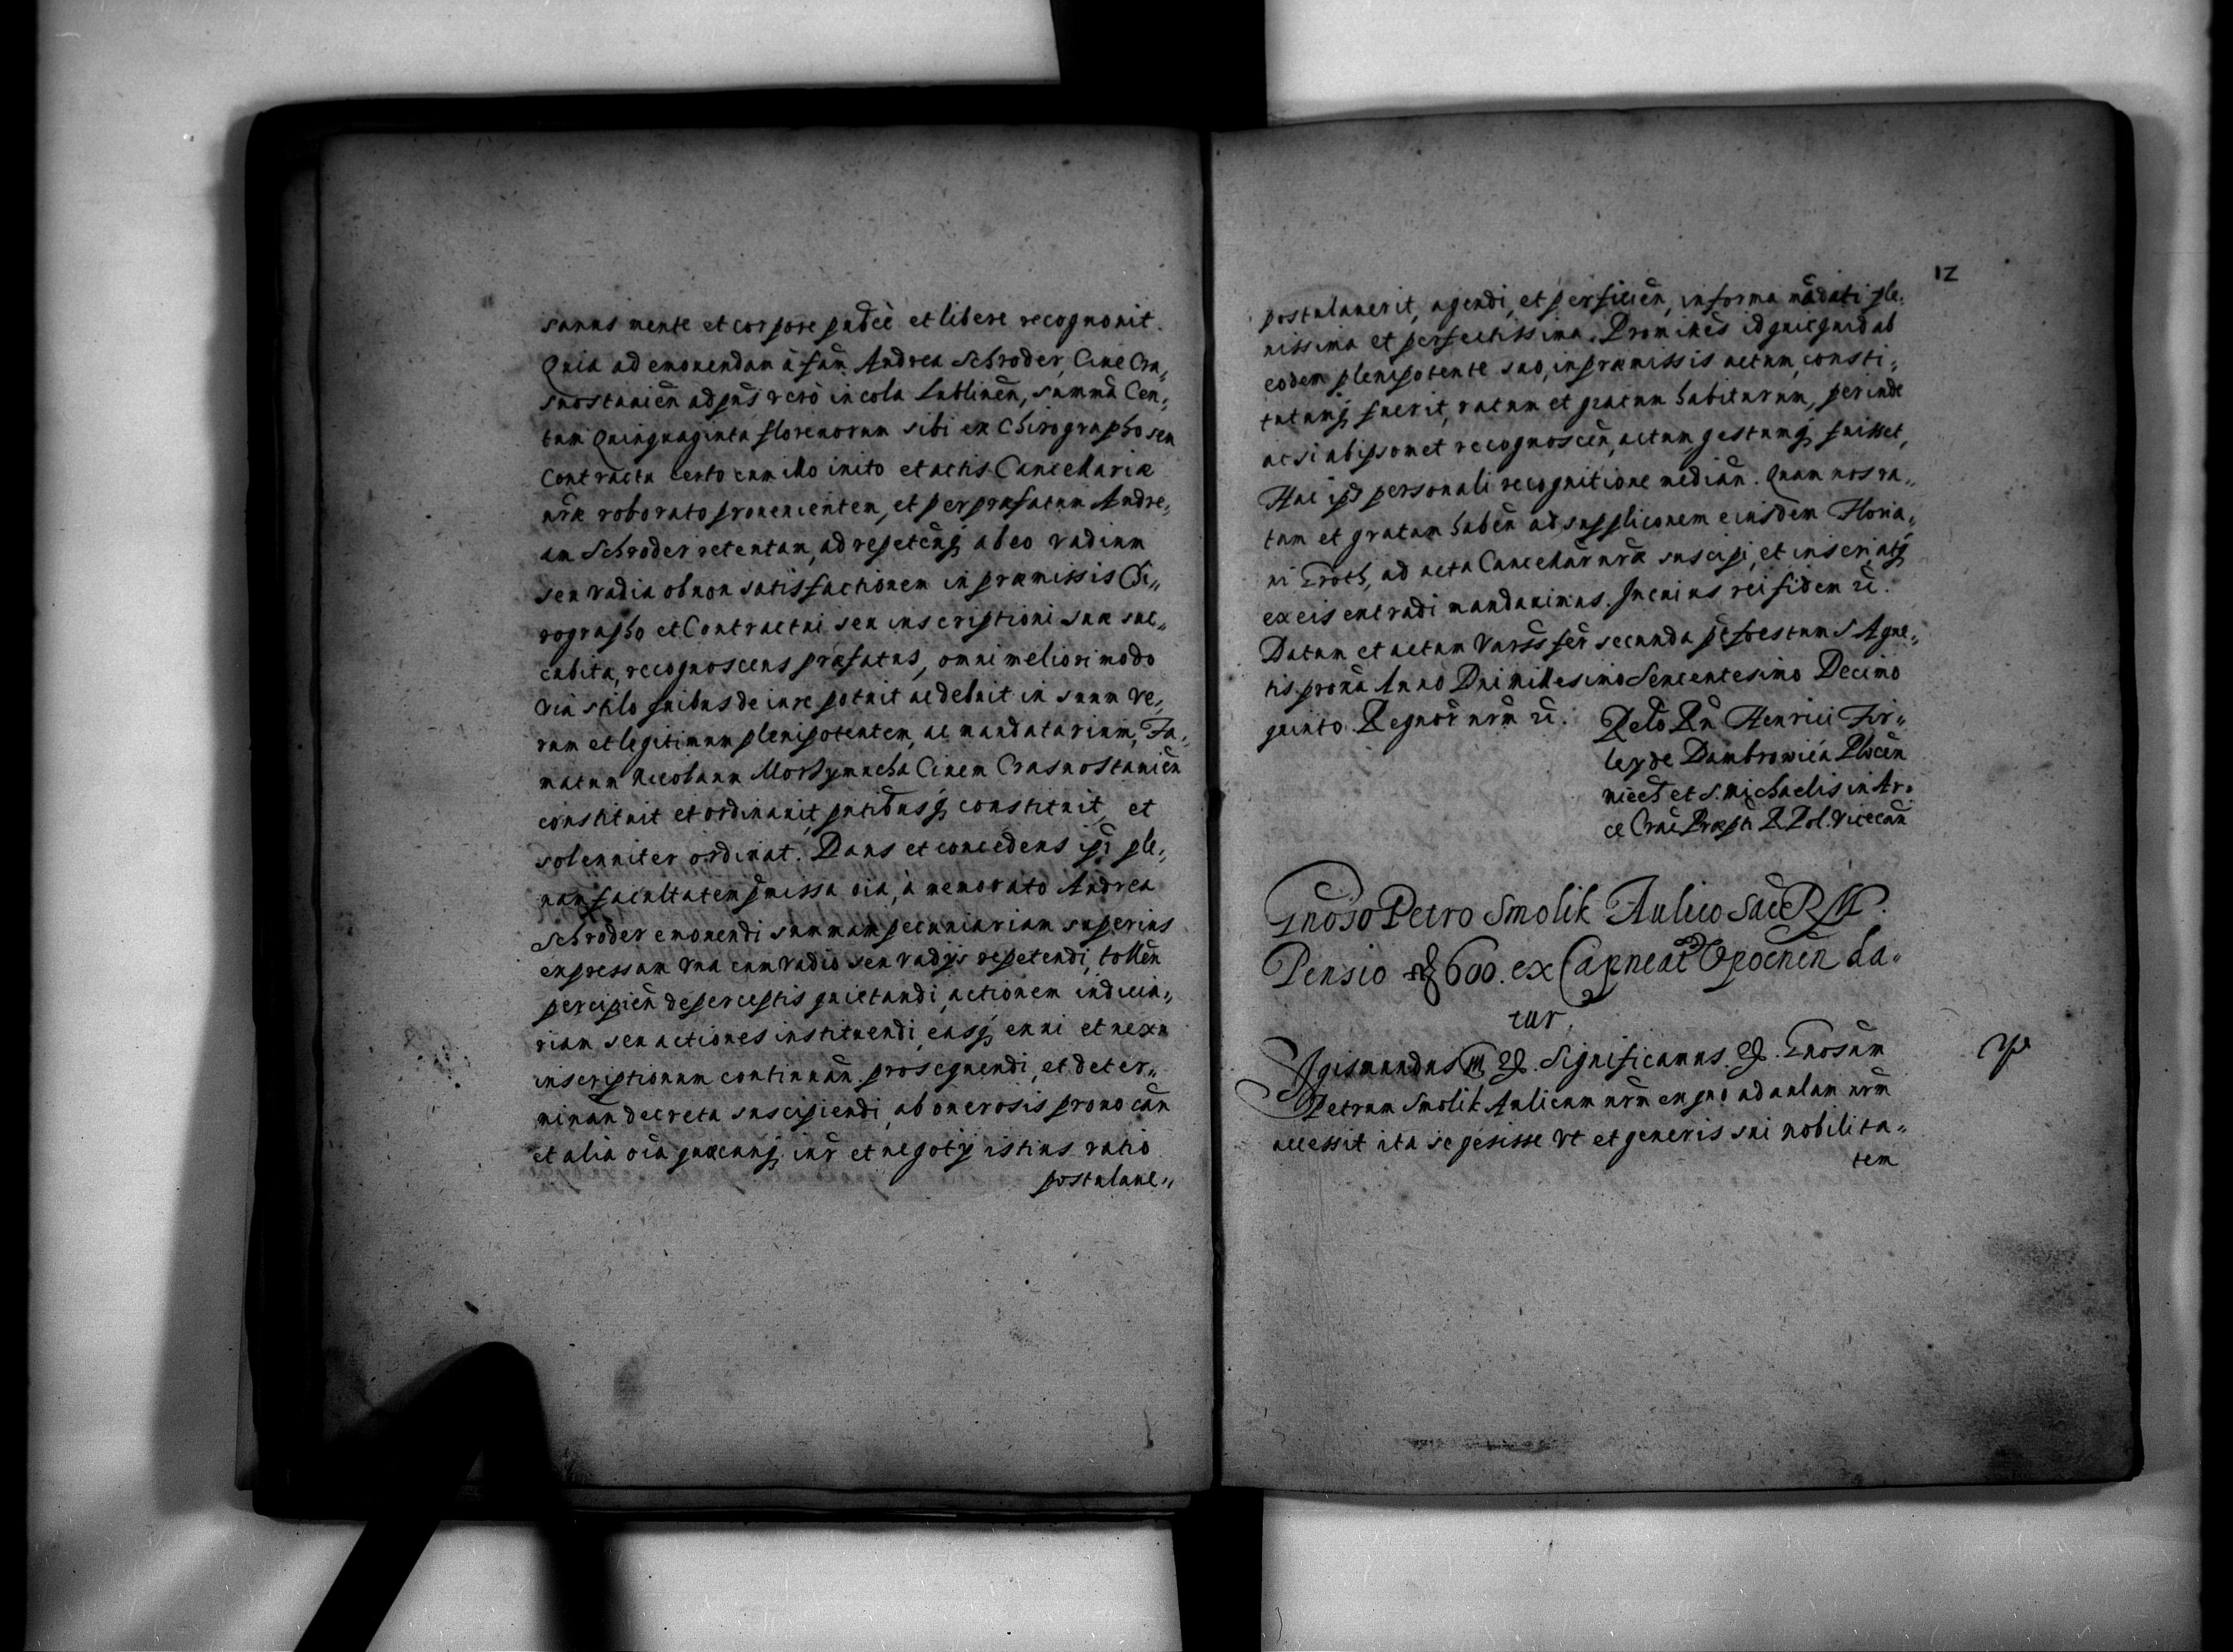 sanus mente et corpore publicè et libere recognouit.
Quia ad emouendam à fam. Andrea Schroder, Ciue Cra„
snostauień ad pñs verò incola Lublinen̄, summā Cen„
tum Quinquaginta florenorum sibi ex Chirographo seu
Contractu certo cum illo inito et actis Cancellariæ
nr̄æ roborato prouenientem, et per præfatum Andre„
am Schroder retentam, ad repetenq̨ ab eo vadium
seu vadia ob non satisfactionem in præmissis Chi„
rographo et Contractui seu inscriptioni suæ suc„
cubita, recognoscens præfatus, omni meliori modo
via stilo quibus de iure potuit ac debuit in suum ve„
rum et legitimum plenipotentem, ac mandatarium, Fa„
matum Nicolaum Ciuem Crasnostauień
constituit et ordinauit, pñtibusq̨ constituit, et
solenniter ordinat. Dans et concedens ipi ple„
nam facultatem pmissa oia, à memorato Andrea
Schroder emouendi summam pecuniariam superius
expressam vna cum vadio seu vadijs repetendi, tollen̄
percipien̄ de perceptis quietandi, actionem iudicia„
riam seu actiones instituendi, easq̨ enni et nexu
inscriptionum continuan̄ prosequendi, et deter„
minan̄ decreta suscipiendi, ab onerosis prouocan̄
et alia oia quæcunq̨ iur̄ et negotij istius ratio
postulaue„
12
postulauerit, agendi, et perficien̄, in forma mādati ple„
nissima et perfectissima. Promitten̄s id quicquid ab
eodem plenipotente suo, in præmissis actum, consti„
tutumq̨ fuerit, ratum et gratum habiturum, perinde
ac si ab ipsomet recognoscen̄, actum gestumq̨ fuisset,
Hac ipā personali recognitione median̄. Quam nos ra„
tam et gratam haben̄ ad suppliconem eiusdem Floria„
ni Groth, ad acta Cancellar̄ nr̄æ suscipi, et inscri, atq̨
ex eis extradi mandauimus. In cuius rei fidem &c.
Datum et actum Vars̄s fer̄ secunda p̄t foestum S Agne„
tis proxā Anno Dni Millesimo Sexcentesimo Decimo
quinto. Regnor̄ nrm̄ &c. Relō Rn̄ Henrici Fir„
ley de Dambrowica Plocen̄
miecħ et S. Michaelis in Ar„
ce Crac̄ Præpti R. Pol. Vicecan̄
Gnoso Petro Smolik Aulico Sac R M.
Pensio fl 600. ex Capneat Opocnen̄ da„
tur.
Sigismundus III &. Significamus &. Gnosum
Petrum Smolik Aulicum nrm̄ ex quo ad aulam nrm̄
accessit ita se gesisse vt et generis sui nobilita„
tem